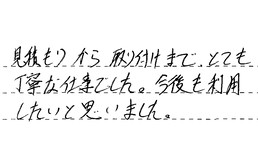 見積もりから取り付けまで、とても
丁寧な仕事でした。今後も利用
したいと思いました。